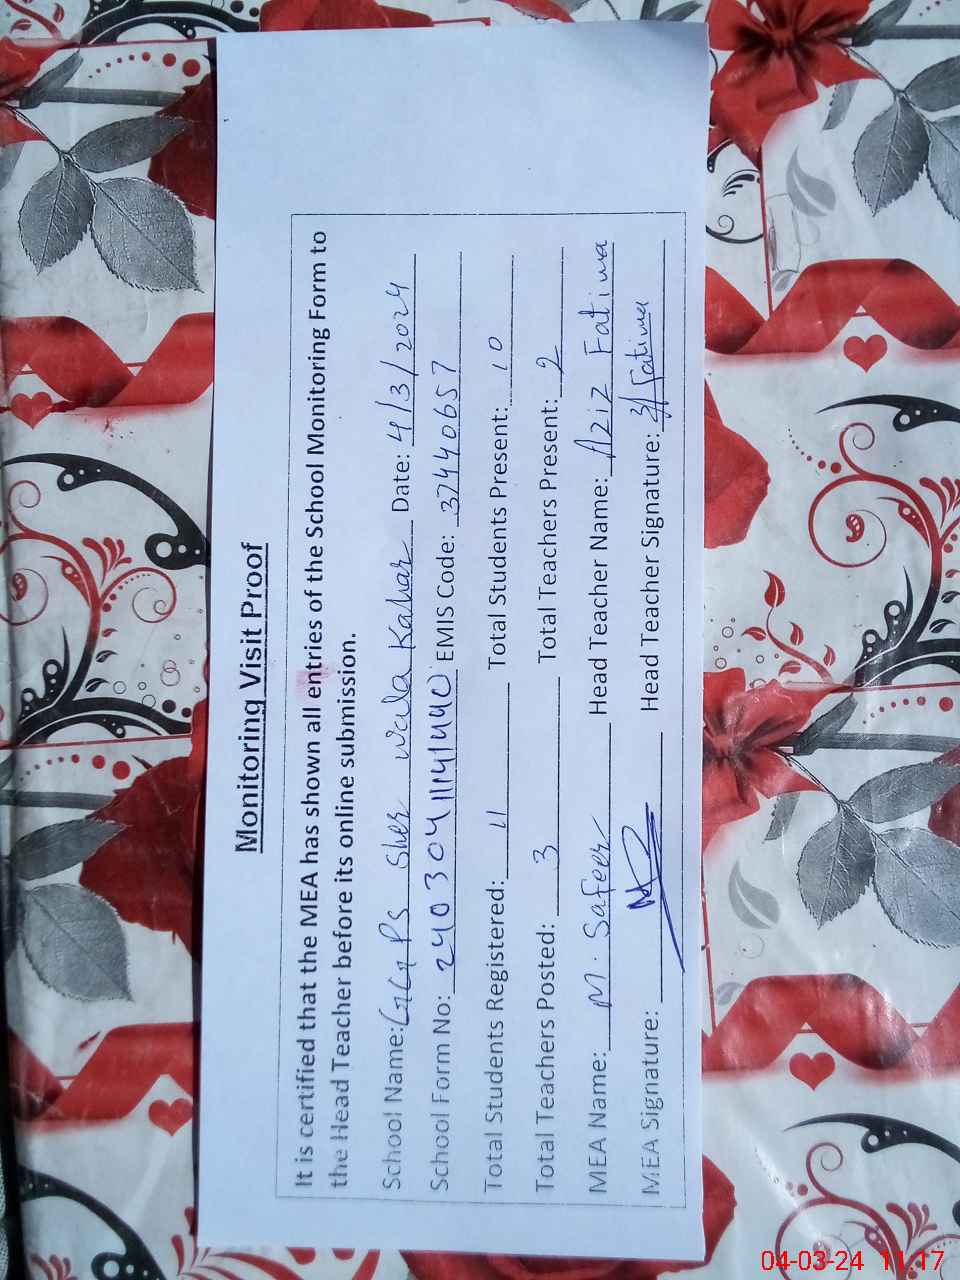 Monitoring Visit Proof
It is certified that the MEA has shown all entries of the School Monitoring Form to
the Head Teacher before its online submission.
School Name: GGPS Sher Wala Kahar Date: 4/3/2024
School Form No: EMIS Code: 37440657
Total Students Registered: 11 Total Students Present: 10
Total Teachers Posted: 3 Total Teachers Present: 2
MEA Name: M. Safeer Head Teacher Name: Aziz Fatima
MEA Signature: Head Teacher Signature: Fatima
04-03-24 11:17